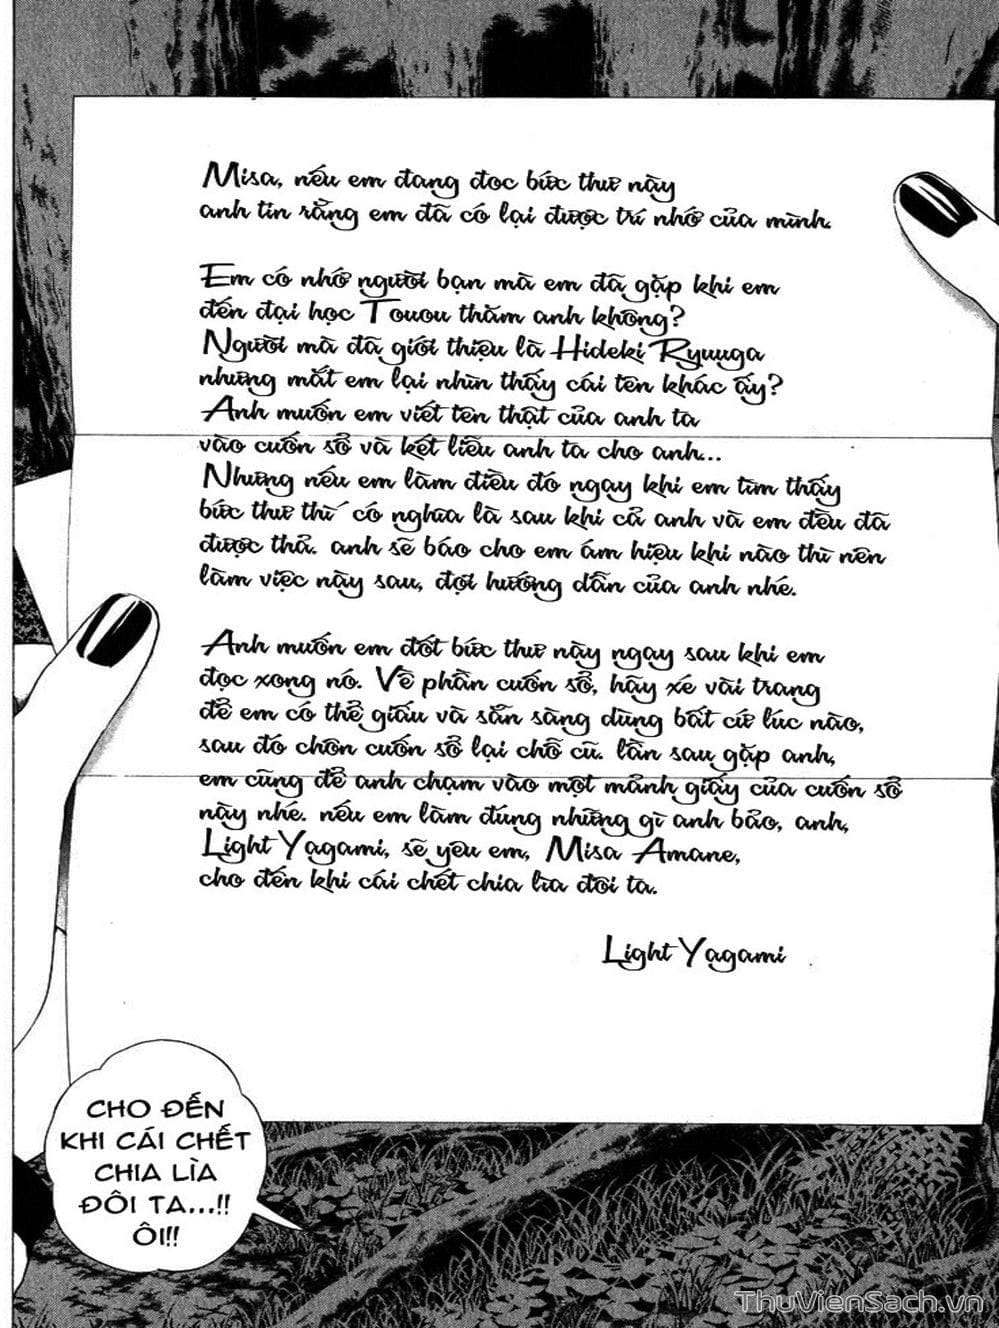 Misa, nếu em đang đọc bức thư này
anh tin rằng em đã có lại được trí nhớ của mình.
Em có nhớ người bạn mà em đã gặp khi em
đến đại học Touou thăm anh không?
Người mà đã giới thiệu là Hideki Ryuuga
nhưng mắt em lại nhìn thấy cái tên khác ấy?
Anh muốn em viết tên thật của anh ta
vào cuốn sổ và kết liễu anh ta cho anh...
Nhưng nếu em làm điều đó ngay khi em tìm thấy
bức thư thì có nghĩa là sau khi cả anh và em đều đã
được thả. anh sẽ báo cho em ám hiệu khi nào thì nên
làm việc này sau, đợi hướng dẫn của anh nhé.
Anh muốn em đốt bức thư này ngay sau khi em
đọc xong nó. Về phần cuốn sổ, hãy xé vài trang
để em có thể giấu và sẵn sàng dùng bất cứ lúc nào,
sau đó chôn cuốn sổ lại chỗ cũ. lần sau gặp anh,
em cũng để anh chạm vào một mảnh giấy của cuốn sổ
này nhé. nếu em làm đúng những gì anh bảo, anh,
Light Yagami, sẽ yêu em, Misa Amane,
cho đến khi cái chết chia lìa đôi ta.
Light Yagami
CHO ĐẾN
KHI CÁI CHẾT
CHIA LÌA
ĐÔI TA...!!
ÔI!!
ThuVienSach.vn